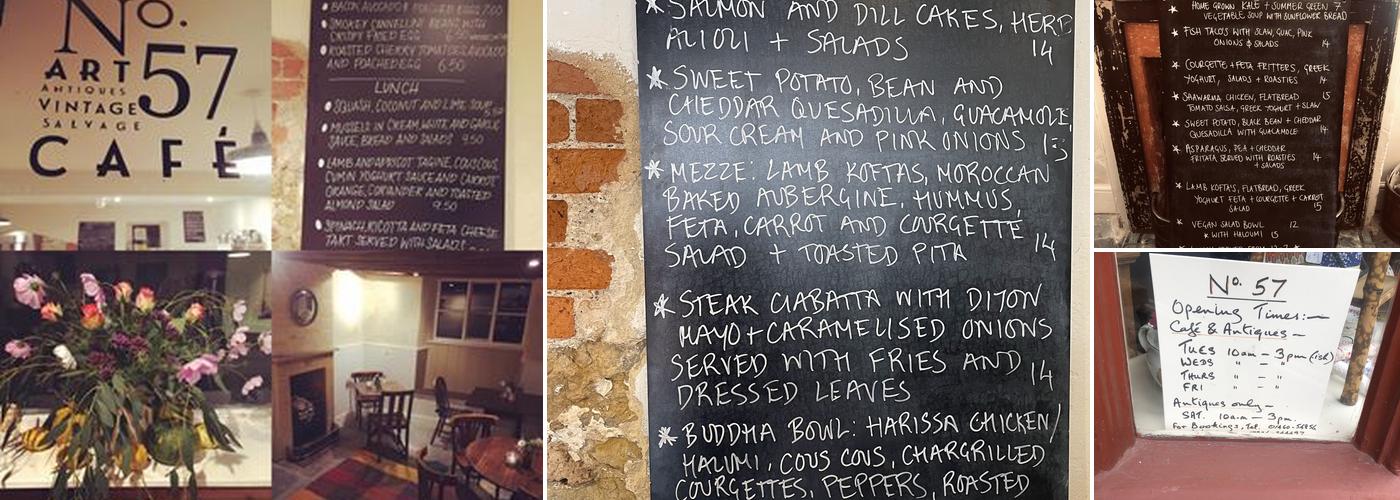 No.
57
ART
ANTIQUES
VINTAGE
SALVAGE
CAFÉ
SMOKEY CANNELLINI BEANS WITH
CRISPY FRIED EGG 6.50
ROASTED CHERRY TOMATOES, AVOCADO
AND POACHED EGG 6.50
LUNCH
SQUASH, COCONUT AND LIME SOUP
MUSSELS IN CREAM, WHITE AND GARLIC
SAUCE, BREAD AND SALADS 9.50
LAMB AND APRICOT TAGINE, COUSCOUS,
CUMIN YOGHURT SAUCE AND CARROT
ORANGE, CORIANDER AND TOASTED
ALMOND SALAD 9.50
SPINACH, RICOTTA AND FETA CHEESE
TART SERVED WITH SALADS
* SALMON AND DILL CAKES, HERB
ALIOLI + SALADS 14
* SWEET POTATO, BEAN AND
CHEDDAR QUESADILLA, GUACAMOLE,
SOUR CREAM AND PINK ONIONS 13
* MEZZE: LAMB KOFTAS, MOROCCAN
BAKED AUBERGINE, HUMMUS,
FETA, CARROT AND COURGETTE
SALAD + TOASTED PITA 14
* STEAK CIABATTA WITH DIJON
MAYO + CARAMELISED ONIONS
SERVED WITH FRIES AND
DRESSED LEAVES 14
* BUDDHA BOWL: HARISSA CHICKEN/
HALUMI, COUS COUS, CHARGRILLED
COURGETTES, PEPPERS, ROASTED
* HOME GROWN KALE + SUMMER GREEN 7
VEGETABLE SOUP WITH SUNFLOWER BREAD
* FISH TACO'S WITH SLAW, GUAC, PINK
ONIONS & SALADS 14
* COURGETTE + FETA FRITTERS, GREEK
YOGHURT, SALADS + ROASTIES 14
* SHAWARMA CHICKEN, FLATBREAD 15
TOMATO SALSA, GREEK YOGHURT + SLAW
* SWEET POTATO, BLACK BEAN + CHEDDAR
QUESADILLA WITH GUACAMOLE 14
* ASPARAGUS, PEA + CHEDDAR
FRITATA SERVED WITH ROASTIES 14
+ SALADS
* LAMB KOFTA'S, FLATBREAD, GREEK
YOGHURT FETA + COURGETTE + CARROT
SALAD 15
* VEGAN SALAD BOWL 12
* WITH HALOUMI 15
No. 57
Opening Times:-
Café & Antiques -
TUES 10am - 3pm (ish)
WEDS " - "
THURS " - "
FRI " - "
Antiques only -
SAT. 10am - 3pm
For Bookings, Tel.